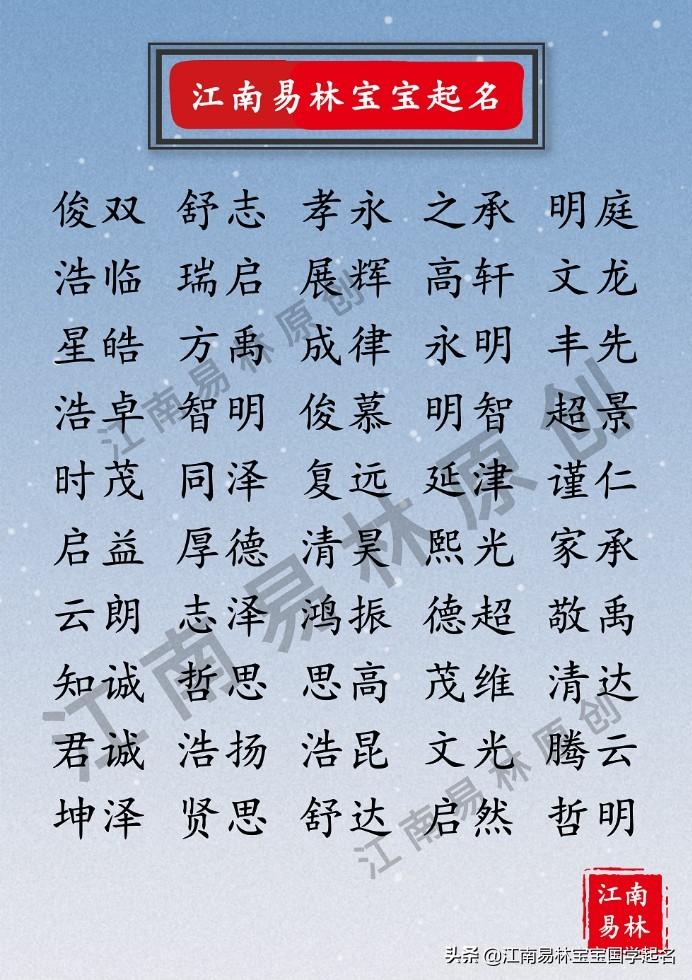 江南易林宝宝起名
俊双 舒志 孝永 之承 明庭
浩临 瑞启 展辉 高轩 文龙
星皓 方禹 成律 永明 丰先
浩卓 智明 俊慕 明智 超景
时茂 同泽 复远 延津 谨仁
启益 厚德 清昊 熙光 家承
云朗 志泽 鸿振 德超 敬禹
知诚 哲思 思高 茂维 清达
君诚 浩扬 浩昆 文光 腾云
坤泽 贤思 舒达 启然 哲明
江南易林原创
江南易林原创
江南易林原创
江南
易林
头条 @江南易林宝宝国学起名